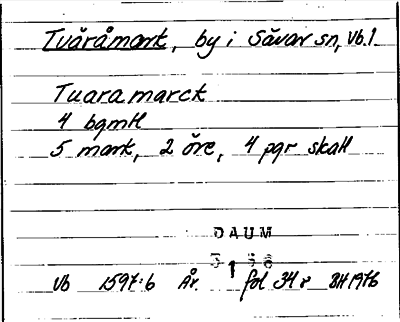 Tväråmark, by i Sävar sn, Vb.l.
Tuaramarck
4 bgmtl
5 mark, 2 öre, 4 pgr skatt
DAUM
Vb 1597:6 År. fol 34 r BH 1976